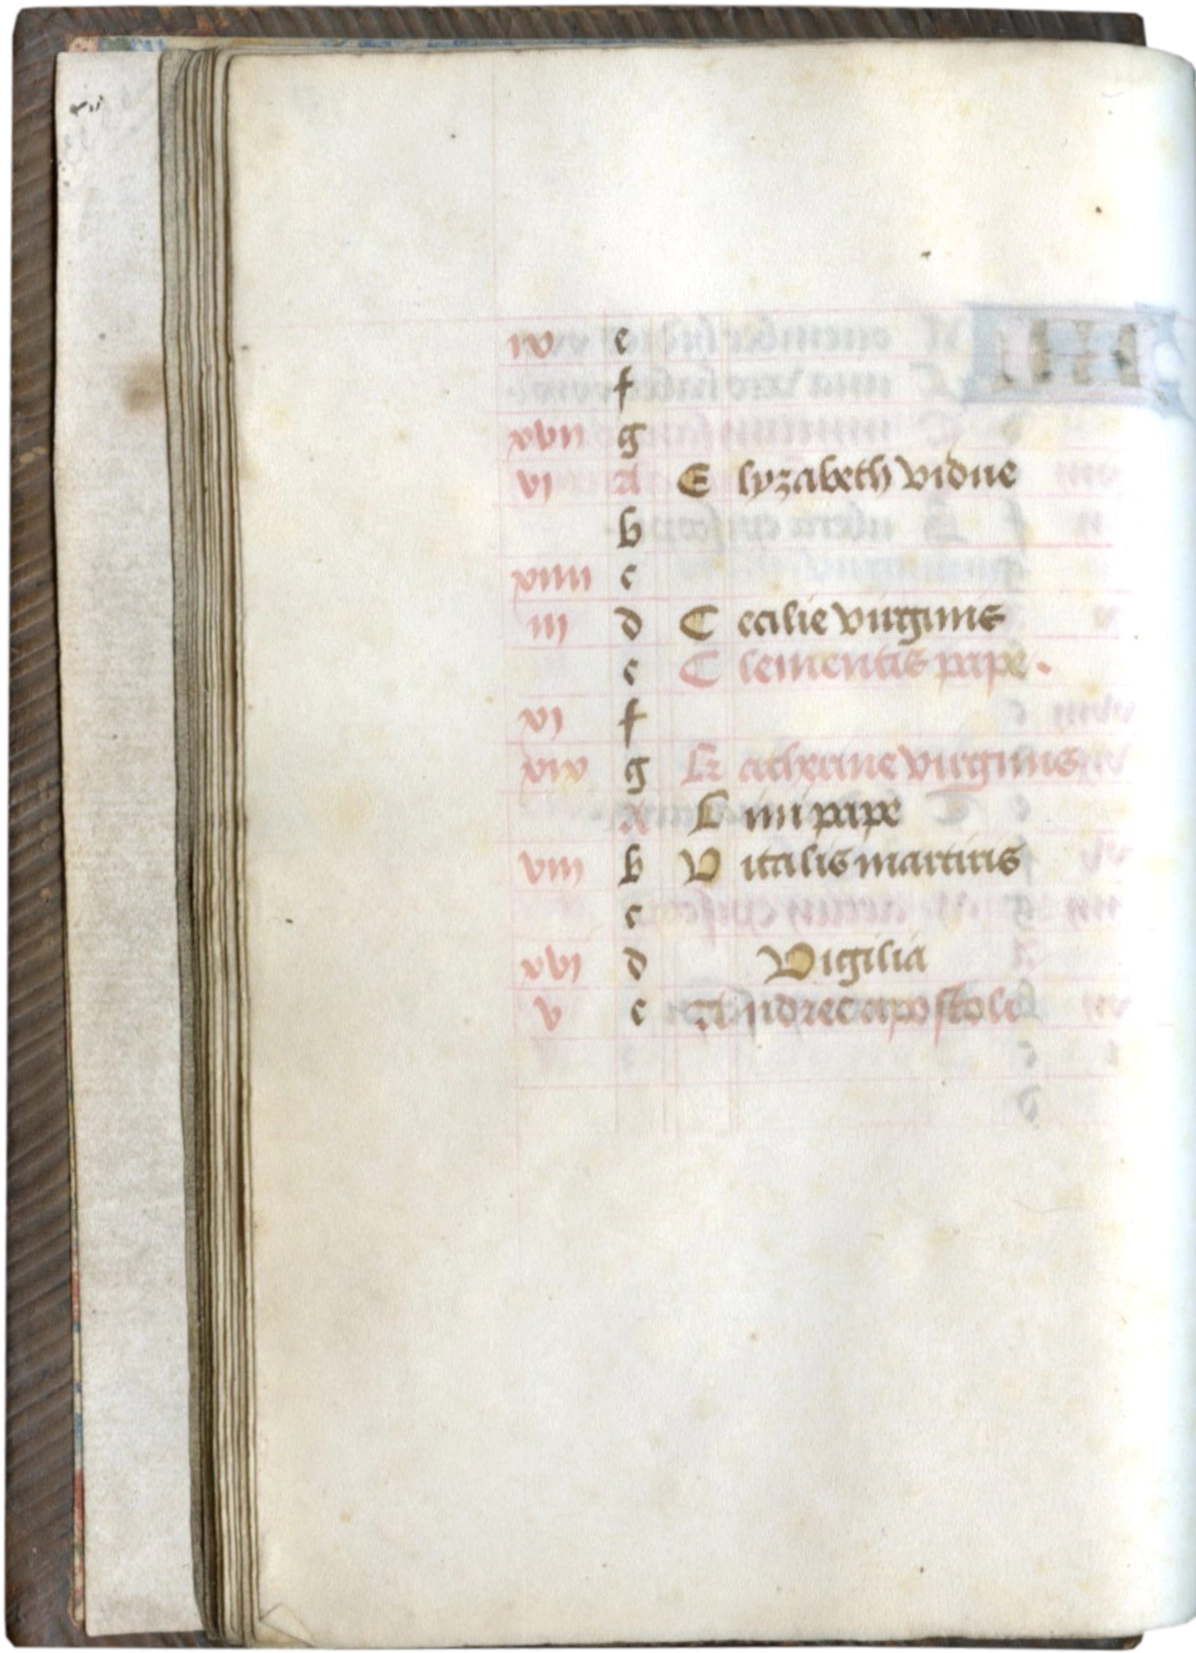 ix e
f
xvii g
vi A Elyzabeth vidue
b
xiiii c
iii d Cecilie virginis
e Clementis pape.
xi f
xix g Katherine virginis
A Lini pape
viii b Vitalis martiris
c
xvi d Vigilia
v e Andree apostoli